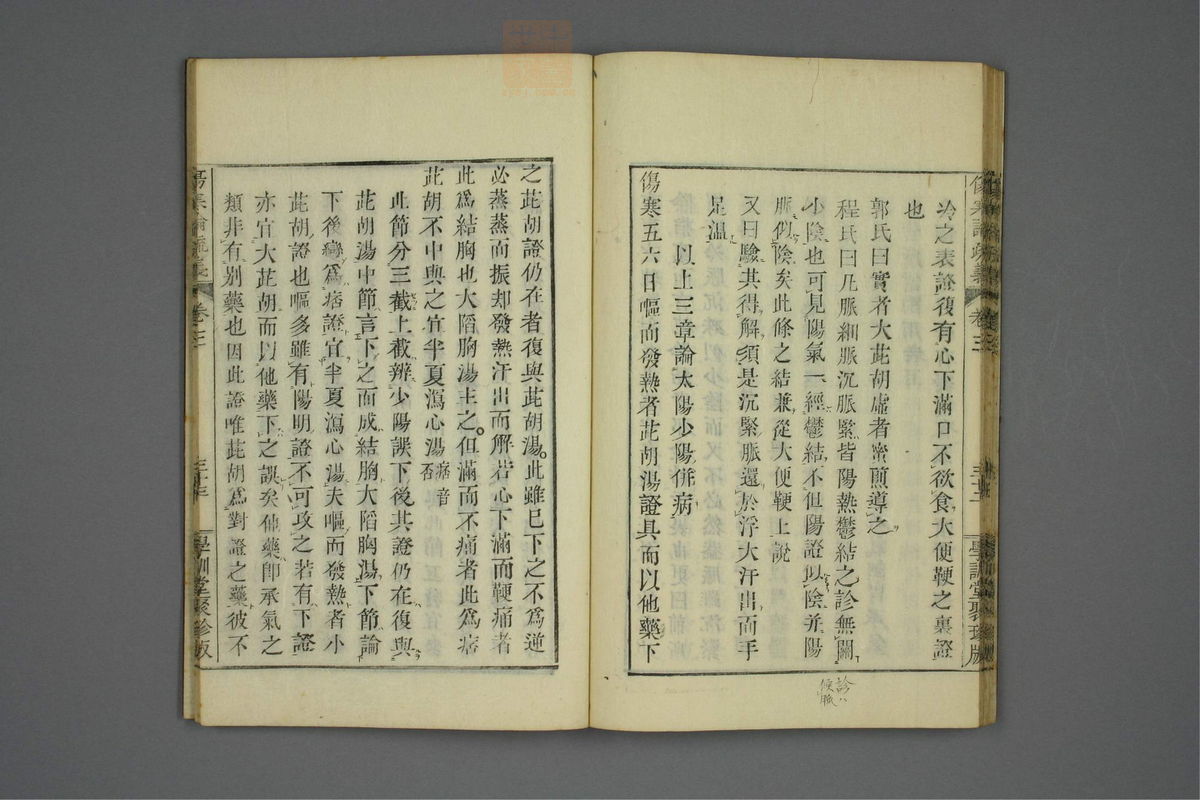 傷寒論疏義 卷三 三十二 學訓堂聚珍版
冷之表證復有心下滿口不欲食大便鞕之裏證
也
郭氏曰實者大茈胡虛者蜜煎導之
程氏曰凡脈細脈沉脈緊皆陽熱鬱結之診無關
少陰也可見陽氣一經鬱結不但陽證似陰并陽
脈似陰矣此條之結兼從大便鞕上說
又曰驗其得解須是沉緊脈還於浮大汗出而手
足溫
以上三章論太陽少陽併病
傷寒五六日嘔而發熱者茈胡湯證具而以他藥下
診ハ
候脈
之茈胡證仍在者復與茈胡湯此雖已下之不爲逆
必蒸蒸而振却發熱汗出而解若心下滿而鞕痛者
此爲結胸也大陷胸湯主之但滿而不痛者此爲痞
茈胡不中與之宜半夏瀉心湯痞音否
此節分三截上截辨少陽誤下後其證仍在復與
茈胡湯中節言下之而成結胸大陷胸湯下節論
下後變爲痞證宜半夏瀉心湯夫嘔而發熱者小
茈胡證也嘔多雖有陽明證不可攻之若有下證
亦宜大茈胡而以他藥下之誤矣他藥卽承氣之
類非有別藥也因此證唯茈胡爲對證之藥彼不
傷寒論疏義 卷三 三十三 學訓堂聚珍版